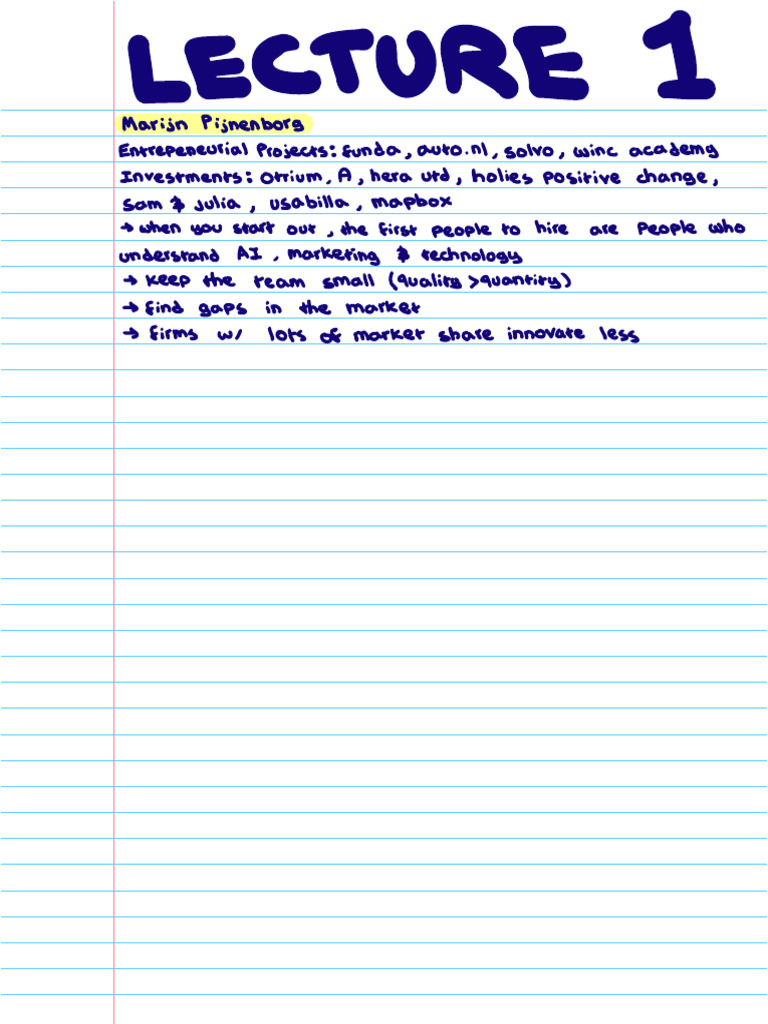 LECTURE 1
Marijn Pijnenborg
Entrepeneurial Projects: funda, auto.nl, solvo, winc academy
Investments: Otrium, A, hera utd, holies positive change,
Sam & Julia, usabilla, mapbox
→ when you start out, the first people to hire are People who
understand AI, marketing & technology
→ keep the team small (quality >quantity)
→ find gaps in the market
→ firms w/ lots of market share innovate less